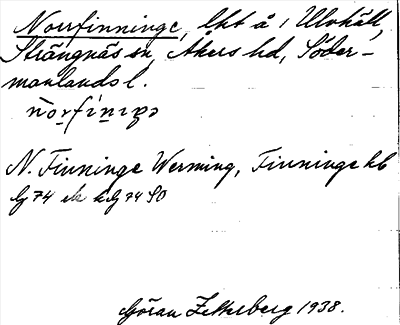 Norrfinninge, lht å 1 Ulvhäll,
Strängnäs sn, Åkers hd, Söder-
manlands l.
N. Finninge Werming, Finninge hb
Lg 74 ek kg 74 SO
Göran Zetterberg 1938.